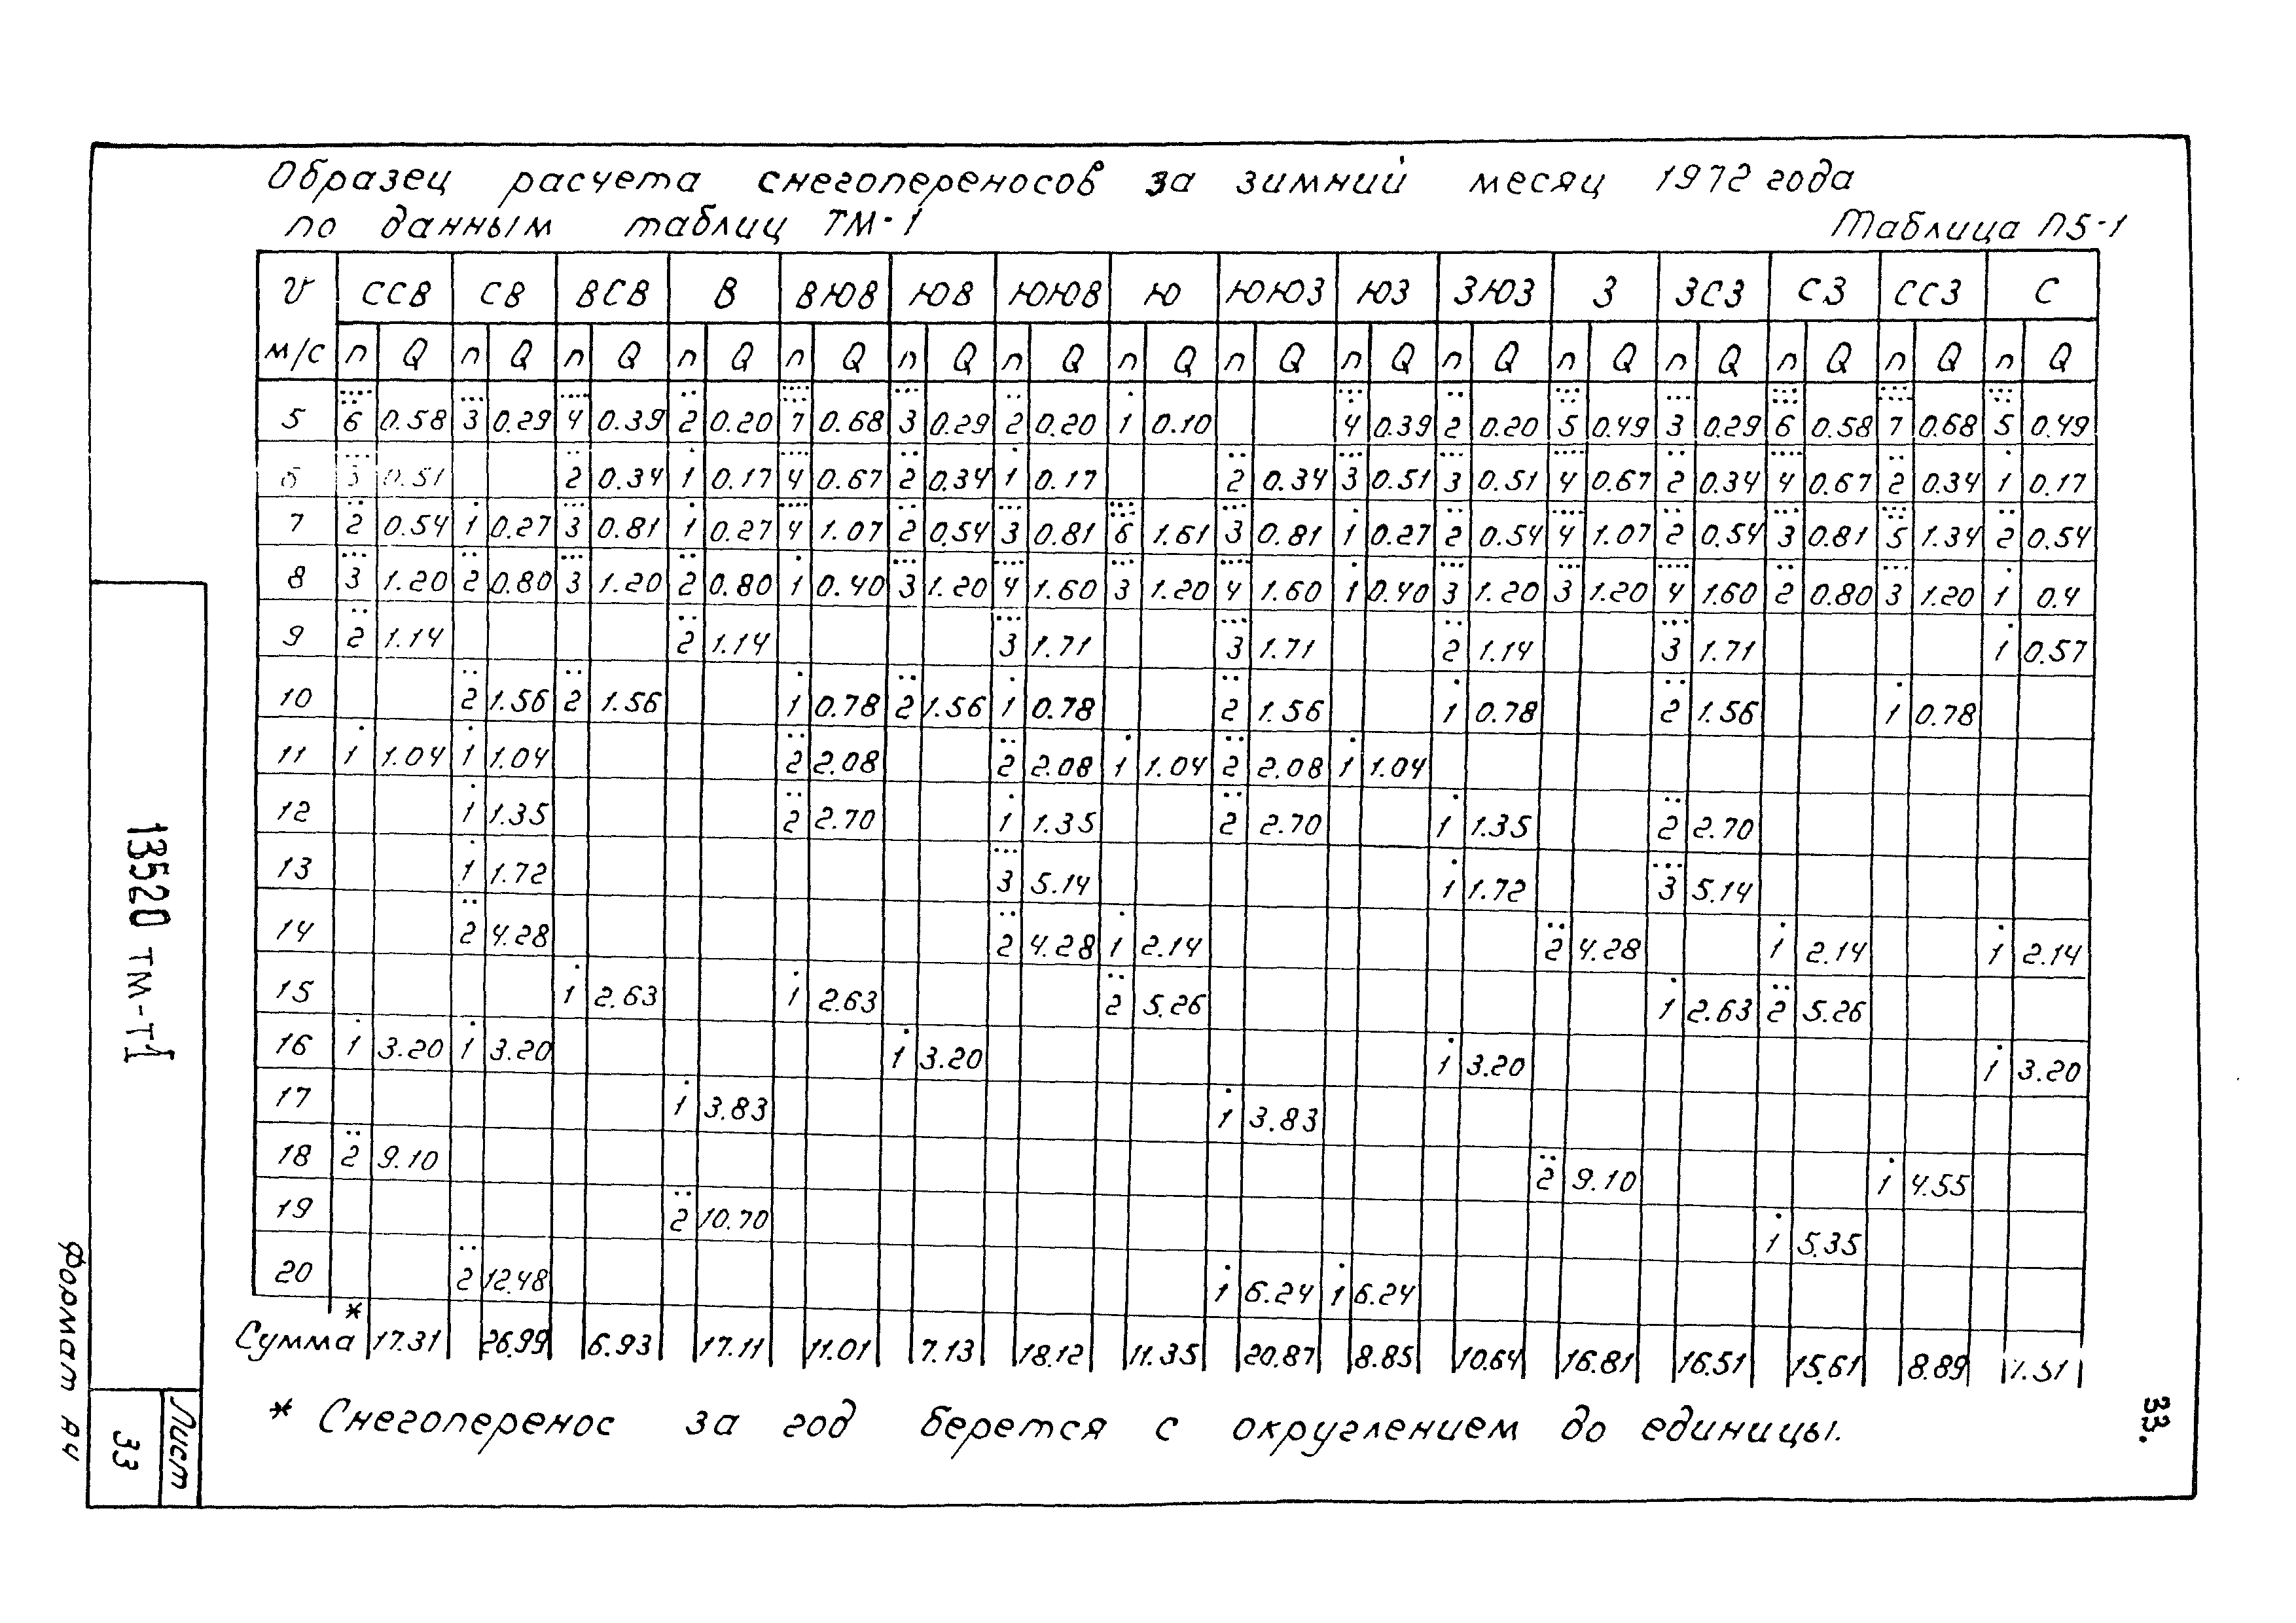 Образец расчета снегопереносов за зимний месяц 1972 года
по данным таблиц ТМ-1
Таблица П5-1
v м/с | ССВ | СВ | ВСВ | В | ВЮВ | ЮВ | ЮЮВ | Ю | ЮЮЗ | ЮЗ | ЗЮЗ | З | ЗСЗ | СЗ | ССЗ | С
n Q | n Q | n Q | n Q | n Q | n Q | n Q | n Q | n Q | n Q | n Q | n Q | n Q | n Q | n Q | n Q
5 | 6 0.58 | 3 0.29 | 4 0.39 | 2 0.20 | 7 0.68 | 3 0.29 | 2 0.20 | 1 0.10 | | 4 0.39 | 2 0.20 | 5 0.49 | 3 0.29 | 6 0.58 | 7 0.68 | 5 0.49
6 | 3 0.51 | | 2 0.34 | 1 0.17 | 4 0.67 | 2 0.34 | 1 0.17 | | 2 0.34 | 3 0.51 | 3 0.51 | 4 0.67 | 2 0.34 | 4 0.67 | 2 0.34 | 1 0.17
7 | 2 0.54 | 1 0.27 | 3 0.81 | 1 0.27 | 4 1.07 | 2 0.54 | 3 0.81 | 6 1.61 | 3 0.81 | 1 0.27 | 2 0.54 | 4 1.07 | 2 0.54 | 3 0.81 | 5 1.34 | 2 0.54
8 | 3 1.20 | 2 0.80 | 3 1.20 | 2 0.80 | 1 0.40 | 3 1.20 | 4 1.60 | 3 1.20 | 4 1.60 | 1 0.40 | 3 1.20 | 3 1.20 | 4 1.60 | 2 0.80 | 3 1.20 | 1 0.4
9 | 2 1.14 | | | 2 1.14 | | | 3 1.71 | | 3 1.71 | | 2 1.14 | | 3 1.71 | | | 1 0.57
10 | | 2 1.56 | 2 1.56 | | 1 0.78 | 2 1.56 | 1 0.78 | | 2 1.56 | | 1 0.78 | | 2 1.56 | | 1 0.78 |
11 | 1 1.04 | 1 1.04 | | | 2 2.08 | | 2 2.08 | 1 1.04 | 2 2.08 | 1 1.04 | | | | | |
12 | | 1 1.35 | | | 2 2.70 | | 1 1.35 | | 2 2.70 | | 1 1.35 | | 2 2.70 | | |
13 | | 1 1.72 | | | | | 3 5.14 | | | | 1 1.72 | | 3 5.14 | | |
14 | | 2 4.28 | | | | | 2 4.28 | 1 2.14 | | | | 2 4.28 | | 1 2.14 | | 1 2.14
15 | | | 1 2.63 | | 1 2.63 | | | 2 5.26 | | | | | 1 2.63 | 2 5.26 | |
16 | 1 3.20 | 1 3.20 | | | | 1 3.20 | | | | | 1 3.20 | | | | | 1 3.20
17 | | | | 1 3.83 | | | | | 1 3.83 | | | | | | |
18 | 2 9.10 | | | | | | | | | | | 2 9.10 | | | 1 4.55 |
19 | | | | 2 10.70 | | | | | | | | | | 1 5.35 | |
20 | | 2 12.48 | | | | | | | 1 6.24 | 1 6.24 | | | | | |
Сумма * | 17.31 | 26.99 | 6.93 | 17.11 | 11.01 | 7.13 | 18.12 | 11.35 | 20.87 | 8.85 | 10.64 | 16.81 | 16.51 | 15.61 | 8.89 |
* Снегоперенос за год берется с округлением до единицы.
33.
13520 тм-т1
Лист
33
Формат А4